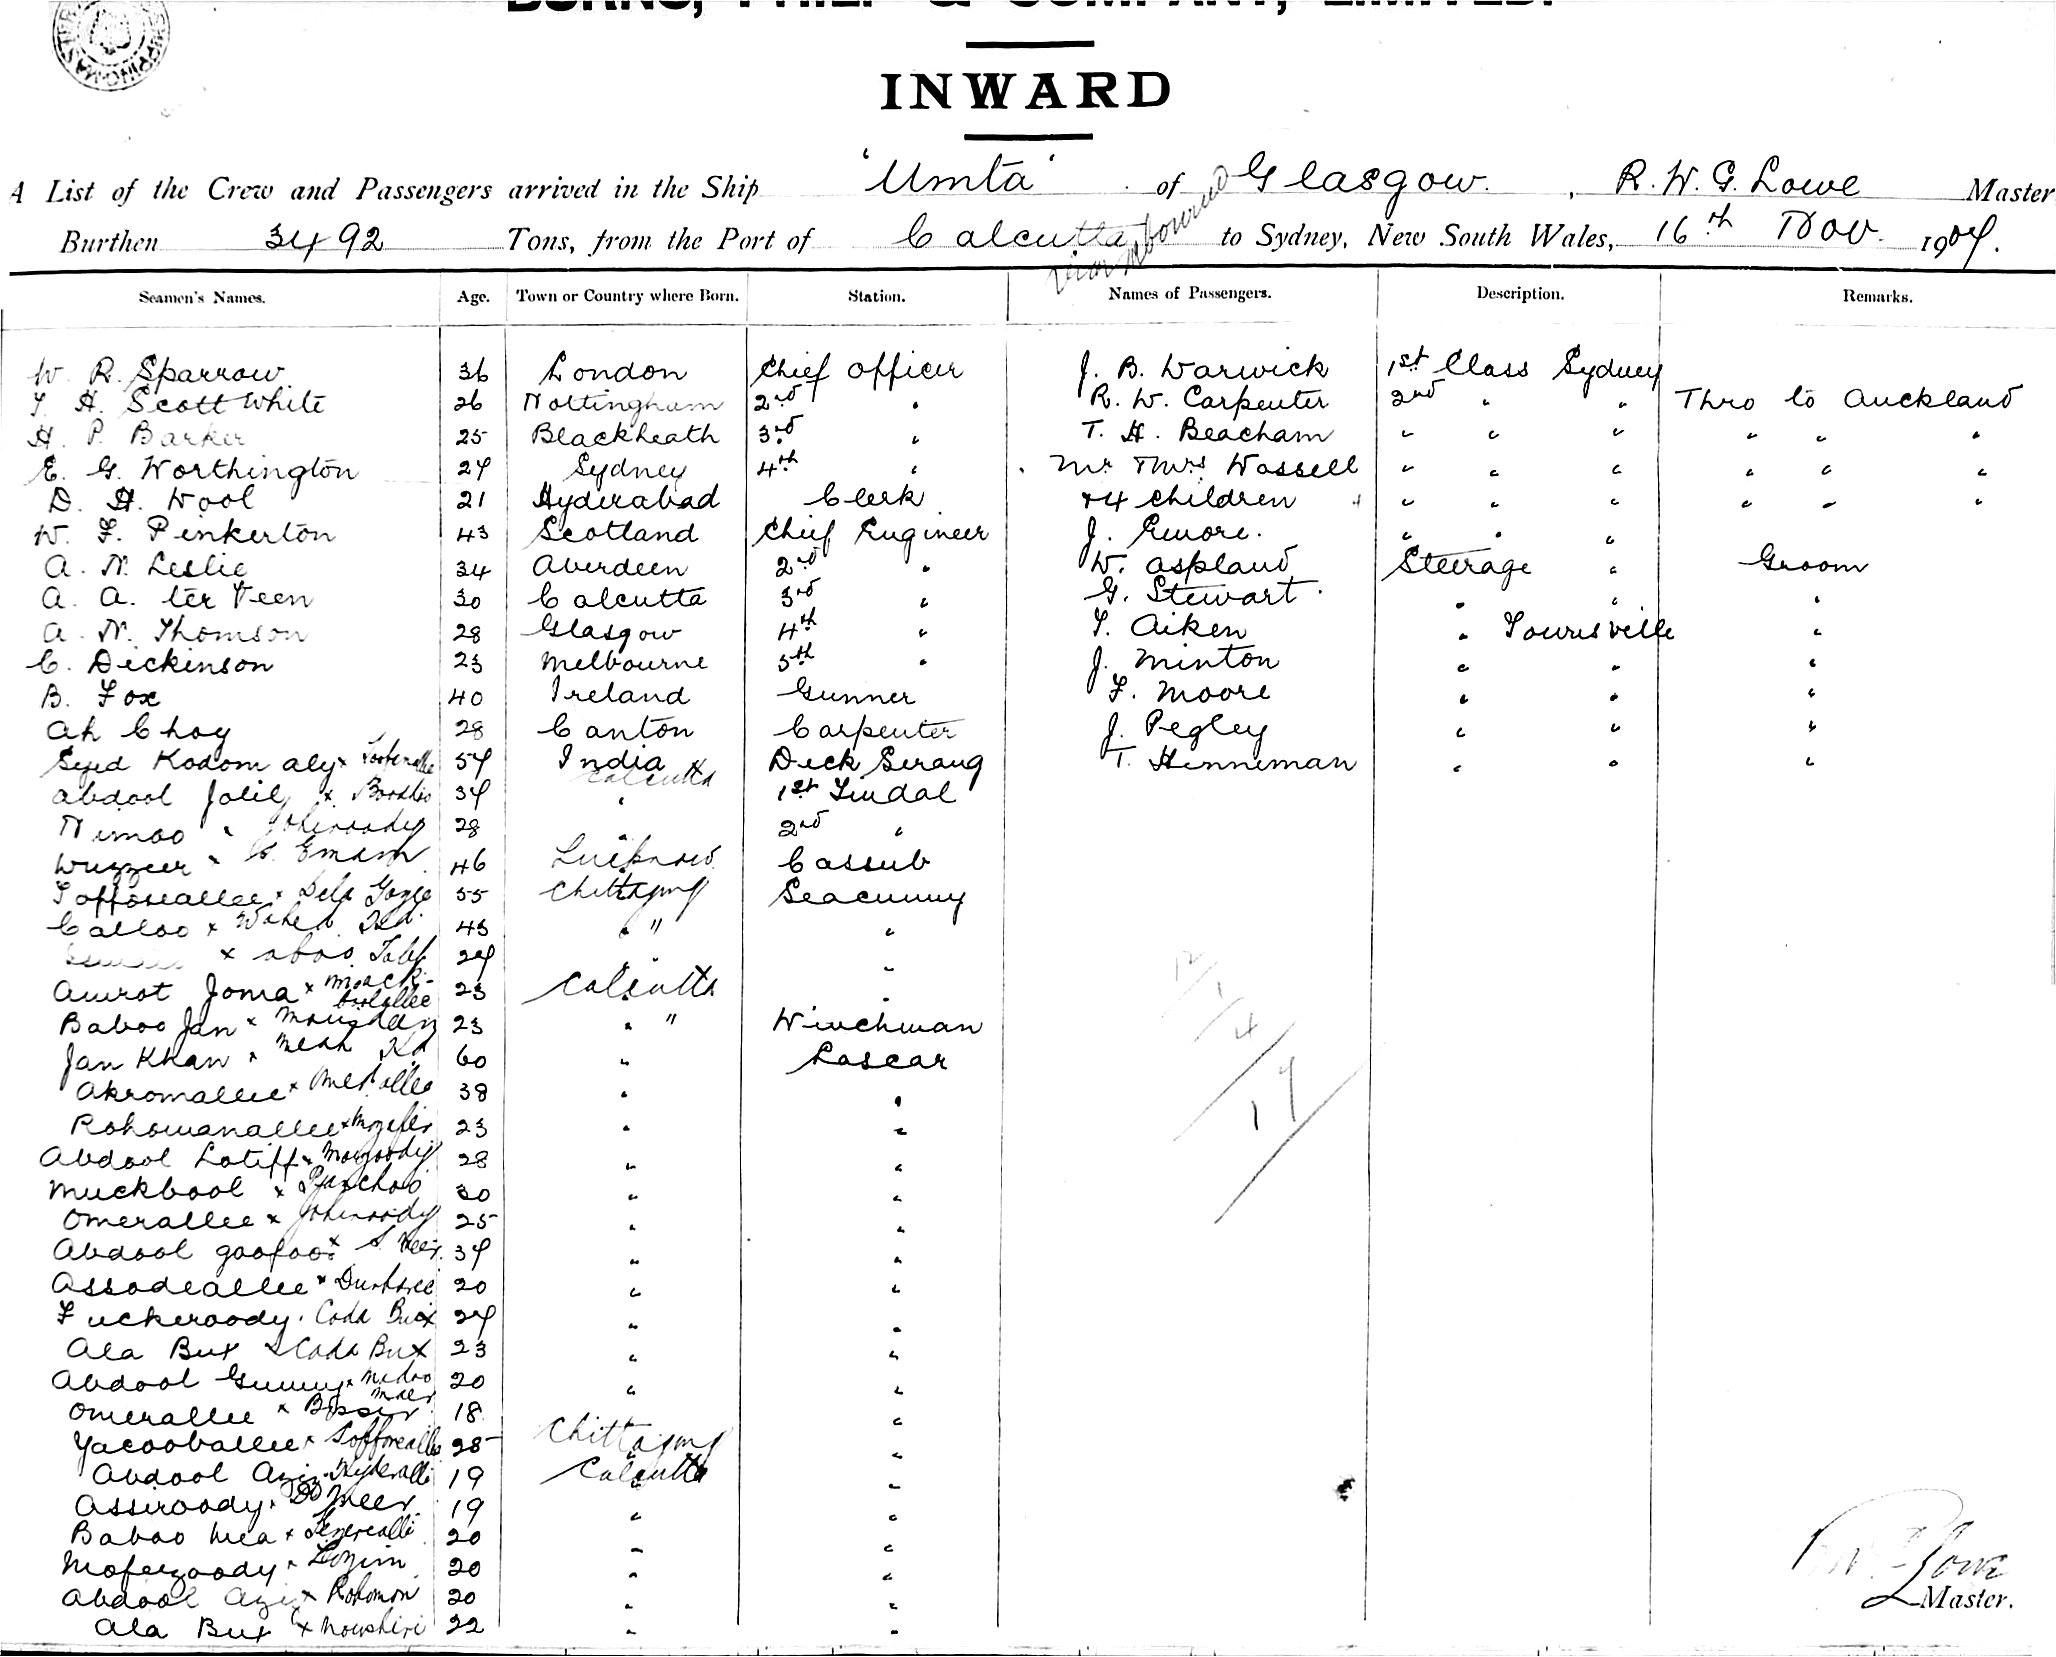 BURNS, PHILP & COMPANY, LIMITED.
INWARD
A List of the Crew and Passengers arrived in the Ship "Umta" of Glasgow, R. W. G. Lowe Master
Burthen 3492 Tons, from the Port of Calcutta to Sydney, New South Wales, 16th Nov. 1904.
Seamen's Names. Age. Town or Country where Born. Station. Names of Passengers. Description. Remarks.
W. R. Sparrow 36 London Chief Officer J. B. Warwick 1st Class Sydney
T. H. Scott White 26 Nottingham 2nd " R. W. Carpenter 2nd " " Thro to Auckland
H. P. Barker 25 Blackheath 3rd " T. H. Beacham " " " " " "
E. G. Worthington 24 Sydney 4th " Mr & Mrs Wassell " " " " " "
D. H. Wool 21 Hyderabad Clerk & 4 children " " " " " "
W. F. Pinkerton 43 Scotland Chief Engineer J. Emore. " " "
A. N. Leslie 34 Aberdeen 2nd " W. Aspland Steerage " Groom
A. A. ter Veen 30 Calcutta 3rd " G. Stewart " " "
A. N. Thomson 28 Glasgow 4th " T. Aiken " Townsville "
C. Dickinson 23 Melbourne 5th " J. Minton " " "
B. Fox 40 Ireland Gunner F. Moore " " "
Ah Choy 28 Canton Carpenter J. Pegley " " "
Syed Kodom aly x 54 India Calcutta Deck Serang T. Hinneman " " "
Abdool Jolil x 34 " 1st Tindal
Nimoo " 28 " 2nd "
Wuzzeer x Emam 46 Lucknow Cassub
Toffoseallee x 55 Chittagong Seacunny
Calloo x 43 " " "
x Aboo 24 " "
Amrot Joma x 23 Calcutta "
Baboo Jan x 23 " " Winchman
Jan Khan x 60 " Lascar
Akromallee x 38 " "
Rohomanallee x 23 " "
Abdool Lotiff x 28 " "
Muckbool x Panchoo 30 " "
Omerallee x 25 " "
Abdool goofoor x 34 " "
Assodeallee x 20 " "
Fuckeroody. Coda Bux 24 " "
Ala Bux x Coda Bux 23 " "
Abdool Gunny x 20 " "
Omerallee x 18 "
Yacooballee x Tofforeallee 28 Chittagong "
Abdool Aziz. Hyderalli 19 Calcutta "
Assiroody x Meer 19 " "
Baboo Mea x 20 " "
Mofeezoody x 20 " "
Abdool Aziz x Rohomon 20 " "
Ala Bux x 22 " "
12/1/4
17
Lowe
Master.